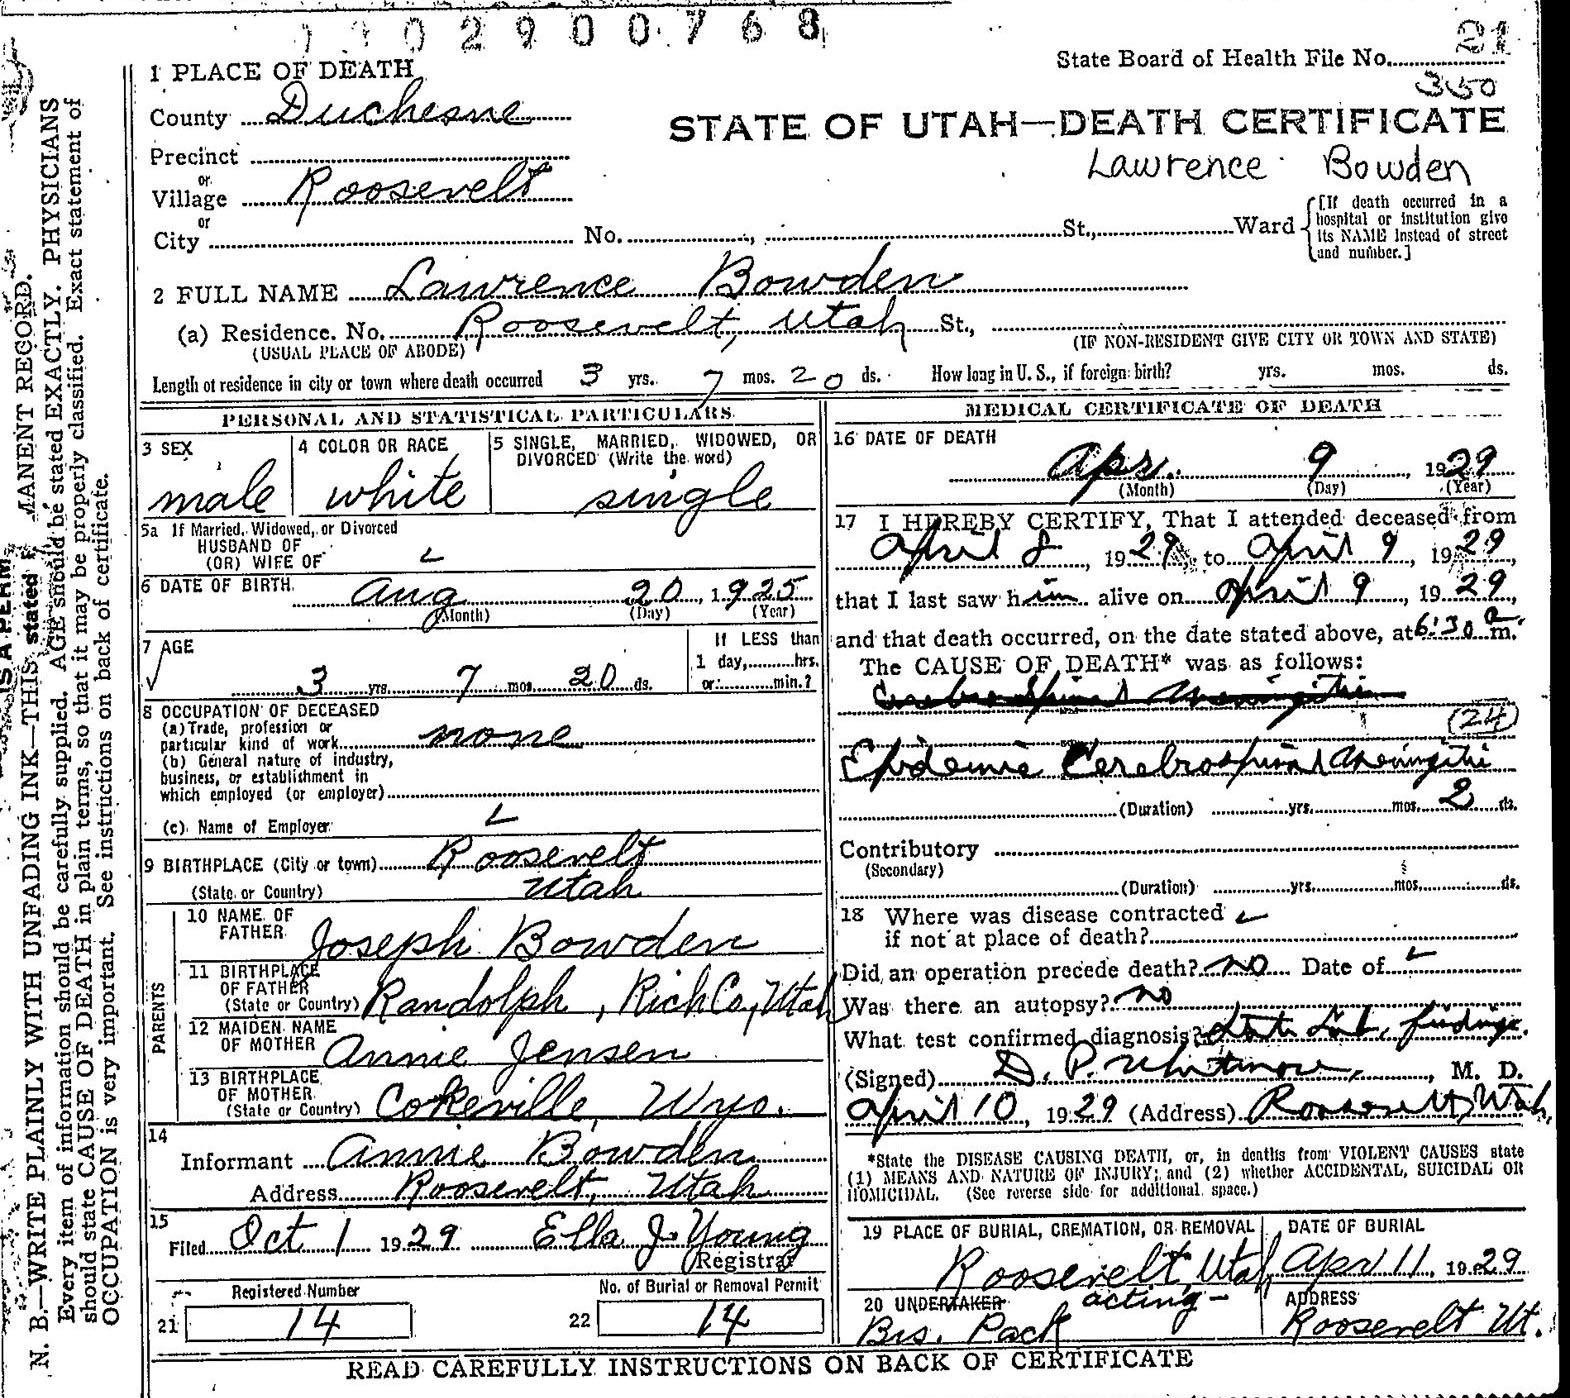 2900768
State Board of Health File No. 21
350
1 PLACE OF DEATH
County Duchesne
STATE OF UTAH—DEATH CERTIFICATE
Lawrence Bowden
Precinct
or
Village Roosevelt
or
City No. St., Ward
[If death occurred in a
hospital or institution give
its NAME instead of street
and number.]
2 FULL NAME Lawrence Bowden
(a) Residence. No. Roosevelt, Utah St.,
(USUAL PLACE OF ABODE) (IF NON-RESIDENT GIVE CITY OR TOWN AND STATE)
Length of residence in city or town where death occurred 3 yrs. 7 mos. 20 ds. How long in U. S., if foreign birth? yrs. mos. ds.
PERSONAL AND STATISTICAL PARTICULARS
3 SEX
male
4 COLOR OR RACE
white
5 SINGLE, MARRIED, WIDOWED, OR
DIVORCED (Write the word)
single
5a If Married, Widowed, or Divorced
HUSBAND OF
(OR) WIFE OF
6 DATE OF BIRTH Aug 20, 1925
(Month) (Day) (Year)
7 AGE
3 yrs. 7 mos. 20 ds.
If LESS than
1 day,.......hrs.
or.......min.?
8 OCCUPATION OF DECEASED
(a) Trade, profession or
particular kind of work none
(b) General nature of industry,
business, or establishment in
which employed (or employer)
(c) Name of Employer
9 BIRTHPLACE (City or town) Roosevelt
(State or Country) Utah
PARENTS
10 NAME OF
FATHER Joseph Bowden
11 BIRTHPLACE
OF FATHER
(State or Country) Randolph, Rich Co., Utah
12 MAIDEN NAME
OF MOTHER Annie Jensen
13 BIRTHPLACE
OF MOTHER
(State or Country) Cokeville, Wyo.
14
Informant Annie Bowden
Address Roosevelt, Utah
15
Filed Oct 1 1929 Ella J. Young
Registrar
Registered Number
21 14
No. of Burial or Removal Permit
22 14
MEDICAL CERTIFICATE OF DEATH
16 DATE OF DEATH
Apr. 9, 1929
(Month) (Day) (Year)
17 I HEREBY CERTIFY, That I attended deceased from
April 8, 1929, to April 9, 1929,
that I last saw him alive on April 9, 1929,
and that death occurred, on the date stated above, at 6:30 a m.
The CAUSE OF DEATH* was as follows:
Cerebrospinal Meningitis
(24)
Epidemic Cerebrospinal Meningitis
(Duration) yrs. mos. 2 ds.
Contributory
(Secondary)
(Duration) yrs. mos. ds.
18 Where was disease contracted
if not at place of death?
Did an operation precede death? No Date of
Was there an autopsy? no
What test confirmed diagnosis? findings.
(Signed) D. P. Whitmore, M. D.
April 10, 1929 (Address) Roosevelt, Utah.
*State the DISEASE CAUSING DEATH, or, in deaths from VIOLENT CAUSES state
(1) MEANS AND NATURE OF INJURY; and (2) whether ACCIDENTAL, SUICIDAL OR
HOMICIDAL. (See reverse side for additional space.)
19 PLACE OF BURIAL, CREMATION, OR REMOVAL
Roosevelt, Utah
DATE OF BURIAL
Apr 11, 1929
20 UNDERTAKER acting-
Bis. Pack
ADDRESS
Roosevelt Ut.
READ CAREFULLY INSTRUCTIONS ON BACK OF CERTIFICATE
N. B.—WRITE PLAINLY WITH UNFADING INK—THIS IS A PERMANENT RECORD.
Every item of information should be carefully supplied. AGE should be stated EXACTLY. PHYSICIANS
should state CAUSE OF DEATH in plain terms, so that it may be properly classified. Exact statement of
OCCUPATION is very important. See instructions on back of certificate.